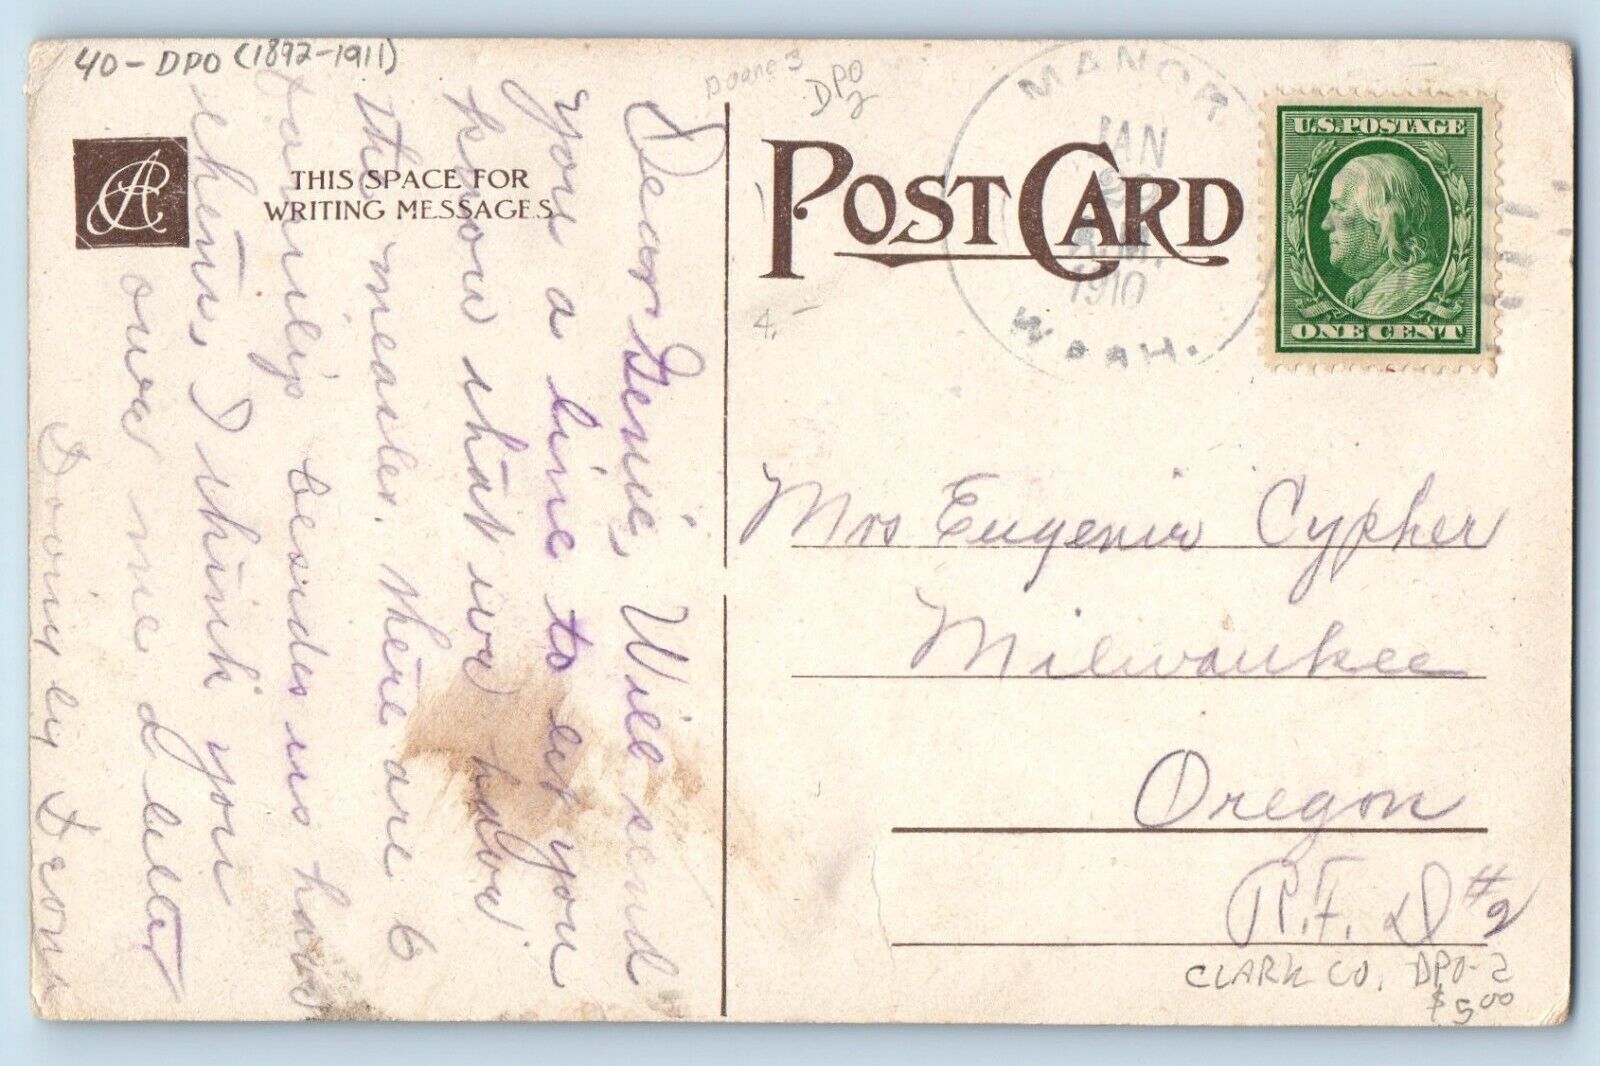 40 - DPO (1892-1911)
Doane 3
DPO
2
THIS SPACE FOR
WRITING MESSAGES
POST CARD
4.-
MANOR
JAN
A.M.
1910
WASH.
U.S. POSTAGE
ONE CENT
Dear Genie, Will send
you a line to let you
know what we have
the measles. there are 6
family besides us have
them, I think you
owe me a letter
Loving ly
Mrs Eugenia Cypher
Milwaukee
Oregon
R.F.D #2
CLARK CO. DPO-2
$5.00